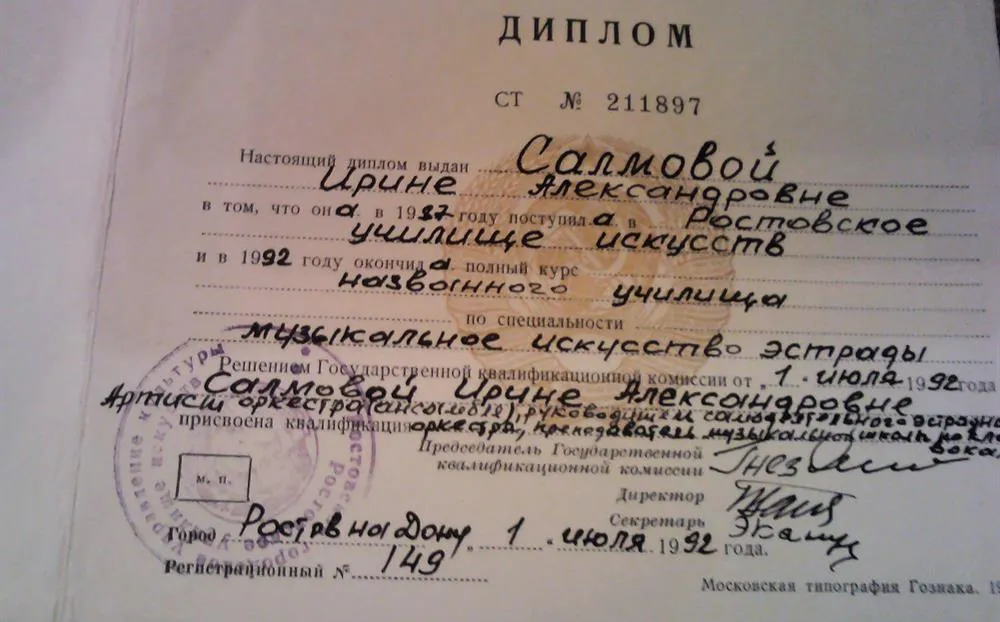 ДИПЛОМ
СТ № 211897
Настоящий диплом выдан Салмовой
Ирине Александровне
в том, что она в 1987 году поступила в Ростовское
училище искусств
и в 1992 году окончила полный курс
названного училища
по специальности
музыкальное искусство эстрады
Решением Государственной квалификационной комиссии от „1" июля 1992 года
Салмовой Ирине Александровне
Артист оркестра (ансамбля), руководитель самодеятельного эстрадного
присвоена квалификация оркестра, преподаватель музыкальной школы по
вока
Председатель Государственной
квалификационной комиссии
м. п.
Директор
Секретарь
Город Ростов на Дону „1" июля 1992 года.
Регистрационный № 149
Московская типография Гознака.